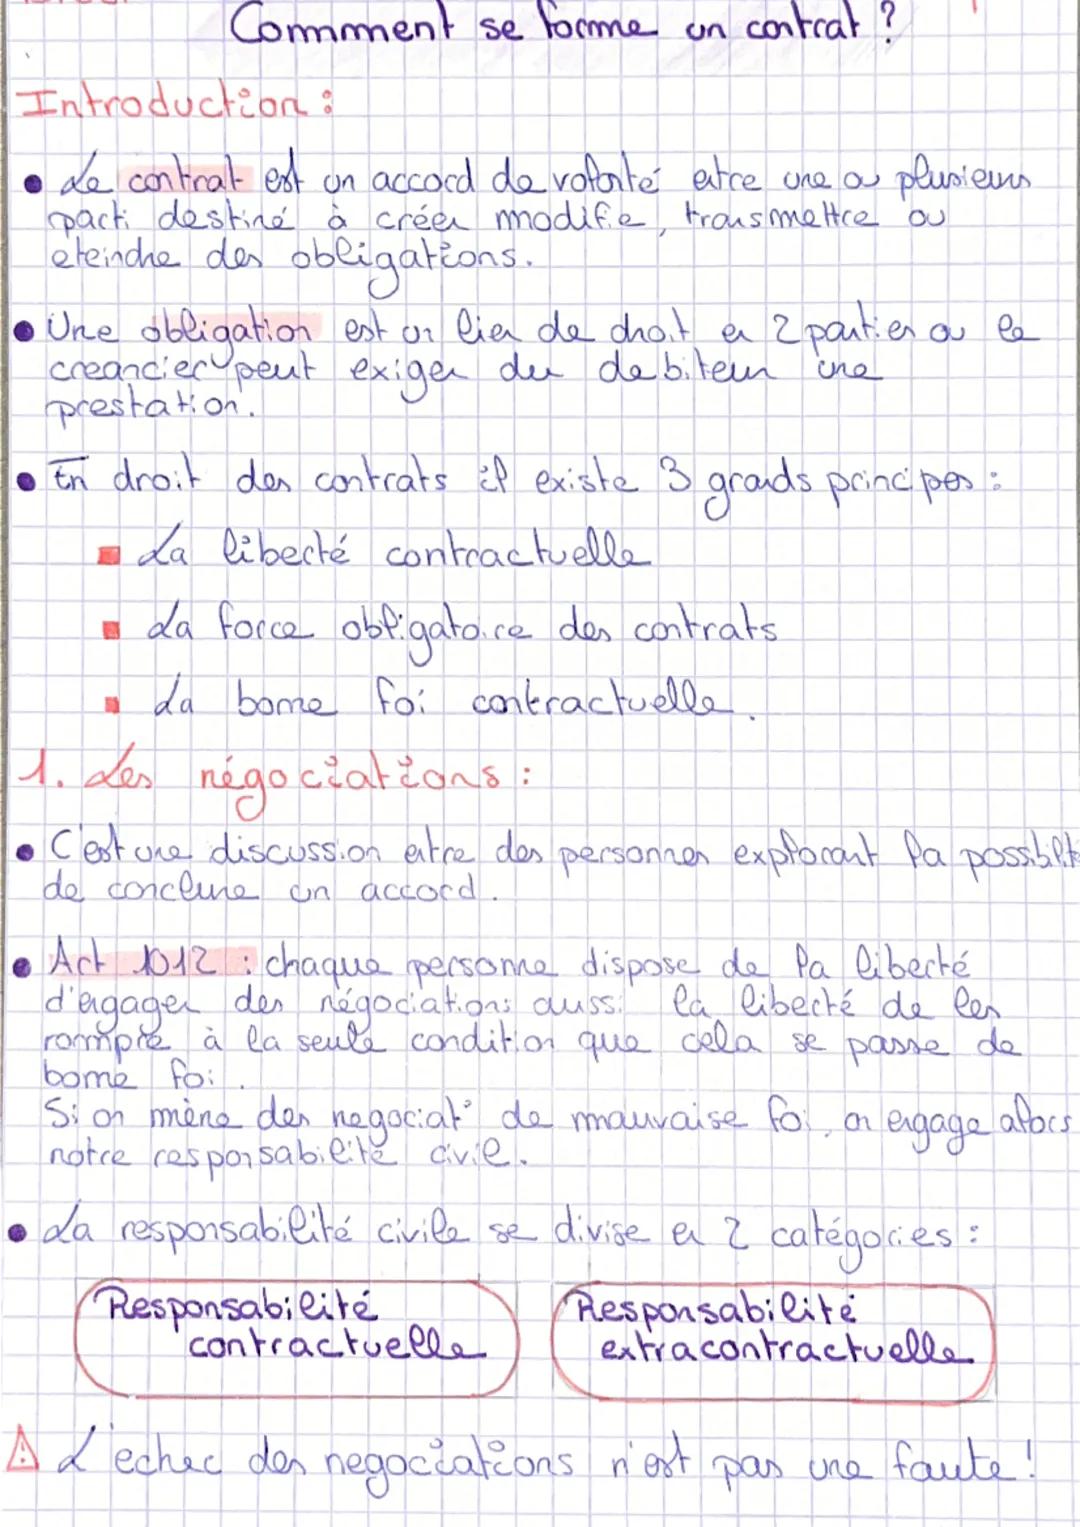 Comment se forme un contrat ?
Introduction :
• Le contrat est un accord de volonté entre une ou plusieurs
parti destiné à créer modifie, transmettre ou
eteindre des obligations.
• Une obligation est un lien de droit en 2 parties ou le
creancier peut exiger du debiteur une
prestation.
• En droit des contrats il existe 3 grands principes :
▪ La liberté contractuelle
▪ La force obligatoire des contrats
▪ La bonne foi contractuelle.
1. Les négociations :
• C'est une discussion entre des personnes explorant la possibilité
de conclure un accord.
• Art 1012 : chaque personne dispose de la liberté
d'engager des négociations aussi la liberté de les
rompre à la seule condition que cela se passe de
bonne foi.
Si on mène des negociat° de mauvaise foi, on engage alors
notre responsabilité civile.
• La responsabilité civile se divise en 2 catégories :
Responsabilité
contractuelle
Responsabilité
extracontractuelle
⚠ L'echec des negociations n'est pas une faute !